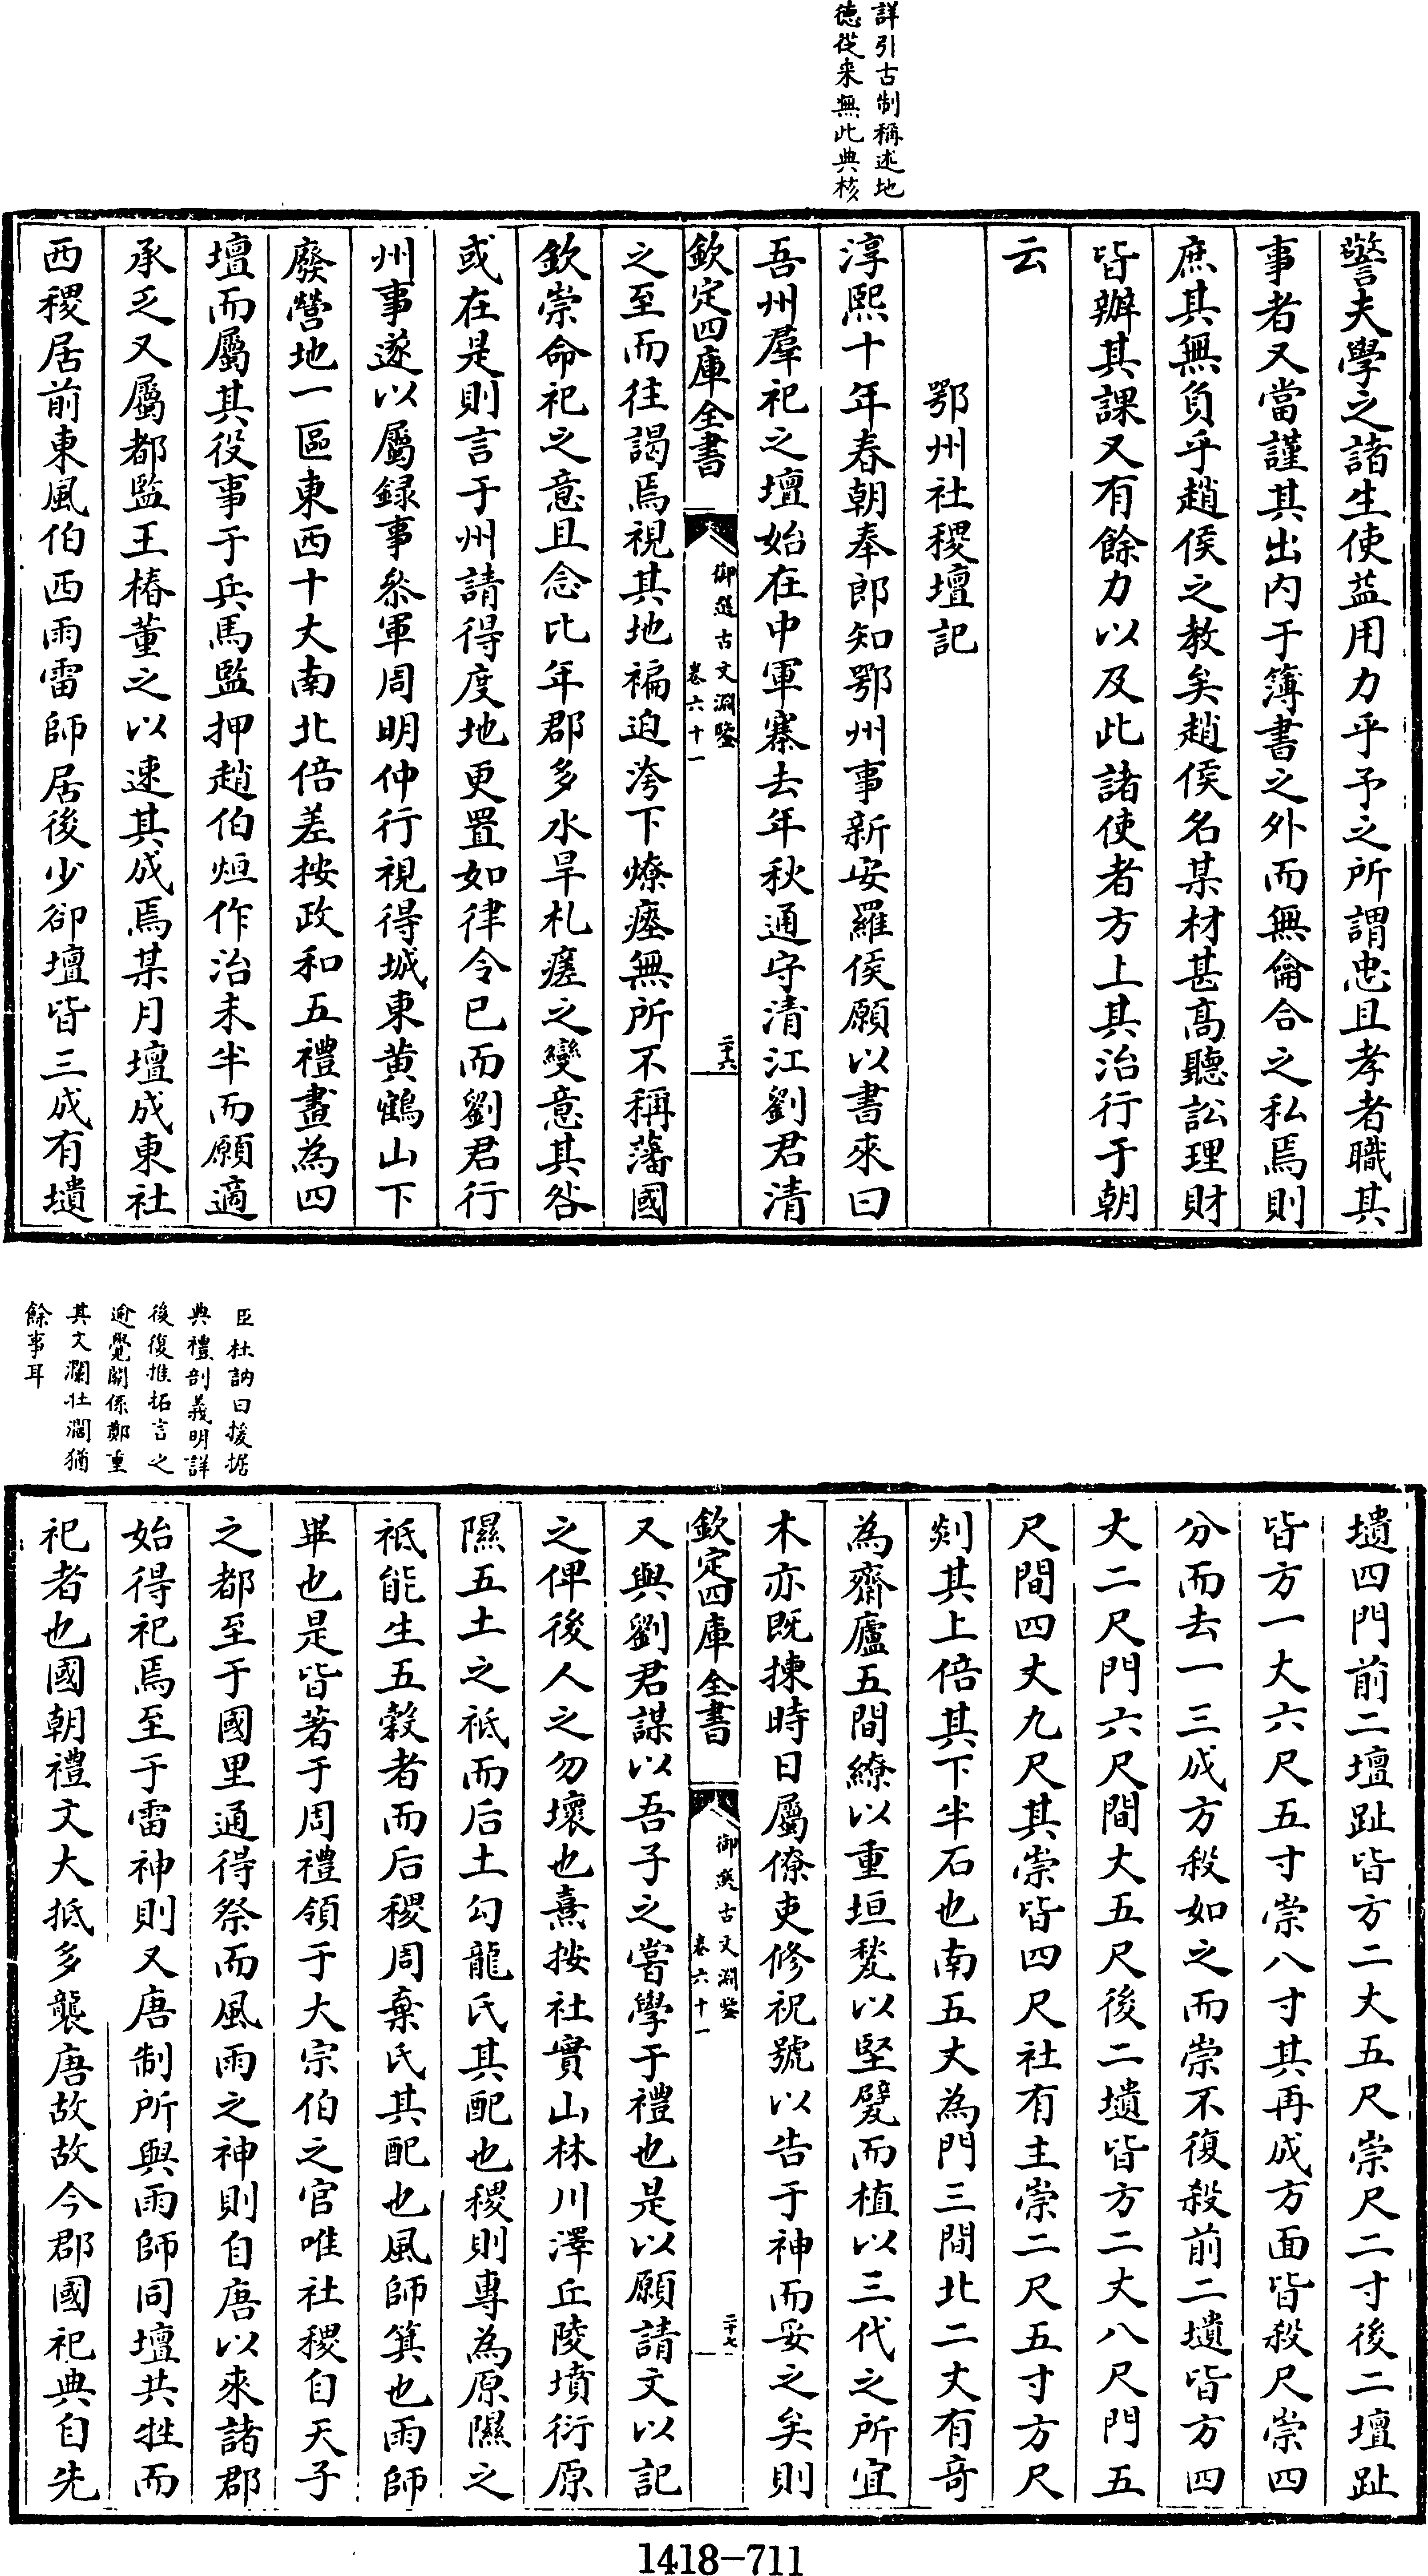 詳引古制稱述地
徳從来無此典核
警夫學之諸生使益用力乎予之所謂忠且孝者職其
事者又當謹其出内于簿書之外而無侖合之私焉則
庶其無負乎趙侯之教矣趙侯名某材甚髙聽訟理財
皆辦其課又有餘力以及此諸使者方上其治行于朝
云
鄂州社稷壇記
淳熙十年春朝奉郎知鄂州事新安羅侯願以書來曰
吾州羣祀之壇始在中軍寨去年秋通守清江劉君清
欽定四庫全書
御選古文淵鑒
卷六十一
二十六
之至而往謁焉視其地褊迫洿下燎瘞無所不稱藩國
欽崇命祀之意且念比年郡多水旱札瘥之變意其咎
或在是則言于州請得度地更置如律令已而劉君行
州事遂以屬録事參軍周明仲行視得城東黄鶴山下
廢營地一區東西十丈南北倍差按政和五禮畫為四
壇而屬其役事于兵馬監押趙伯烜作治未半而願適
承乏又屬都監王椿董之以速其成焉某月壇成東社
西稷居前東風伯西雨雷師居後少卻壇皆三成有壝
臣杜訥曰援据
典禮剖義明詳
後復推拓言之
逾覺關係鄭重
其文瀾壮濶猶
餘事耳
壝四門前二壇趾皆方二丈五尺崇尺二寸後二壇趾
皆方一大六尺五寸崇八寸其再成方面皆殺尺崇四
分而去一三成方殺如之而崇不復殺前二壝皆方四
丈二尺門六尺間丈五尺後二壝皆方二丈八尺門五
尺間四丈九尺其崇皆四尺社有主崇二尺五寸方尺
剡其上倍其下半石也南五丈為門三間北二丈有奇
為齋廬五間繚以重垣甃以堅甓而植以三代之所宜
木亦既揀時日屬僚吏修祝號以告于神而妥之矣則
欽定四庫全書
御選古文淵鑒
卷六十一
二十七
又與劉君謀以吾子之嘗學于禮也是以願請文以記
之俾後人之勿壞也熹按社實山林川澤丘陵墳衍原
隰五土之祗而后土勾龍氏其配也稷則專為原隰之
祗能生五穀者而后稷周棄氏其配也風師箕也雨師
畢也是皆著于周禮領于大宗伯之官唯社稷自天子
之都至于國里通得祭而風雨之神則自唐以來諸郡
始得祀焉至于雷神則又唐制所與雨師同壇共牲而
祀者也國朝禮文大抵多襲唐故故今郡國祀典自先
1418-711